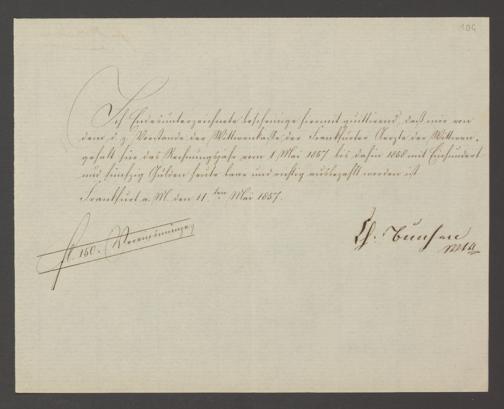 106
Ich Endesunterzeichnete bescheinige hiermit quittirend, daß mir von
dem d. z. Vorstande der Wittwenkasse der Frankfurter Aerzte der Wittwen-
gehalt für das Rechnungsjahr vom 1 Mai 1857 bis dahin 1858 mit Einhundert
und fünfzig Gulden heute baar und richtig ausbezahlt worden ist
Frankfurt a. M. den 11.ten Mai 1857.
fl. 150.
Ch. Bunsen